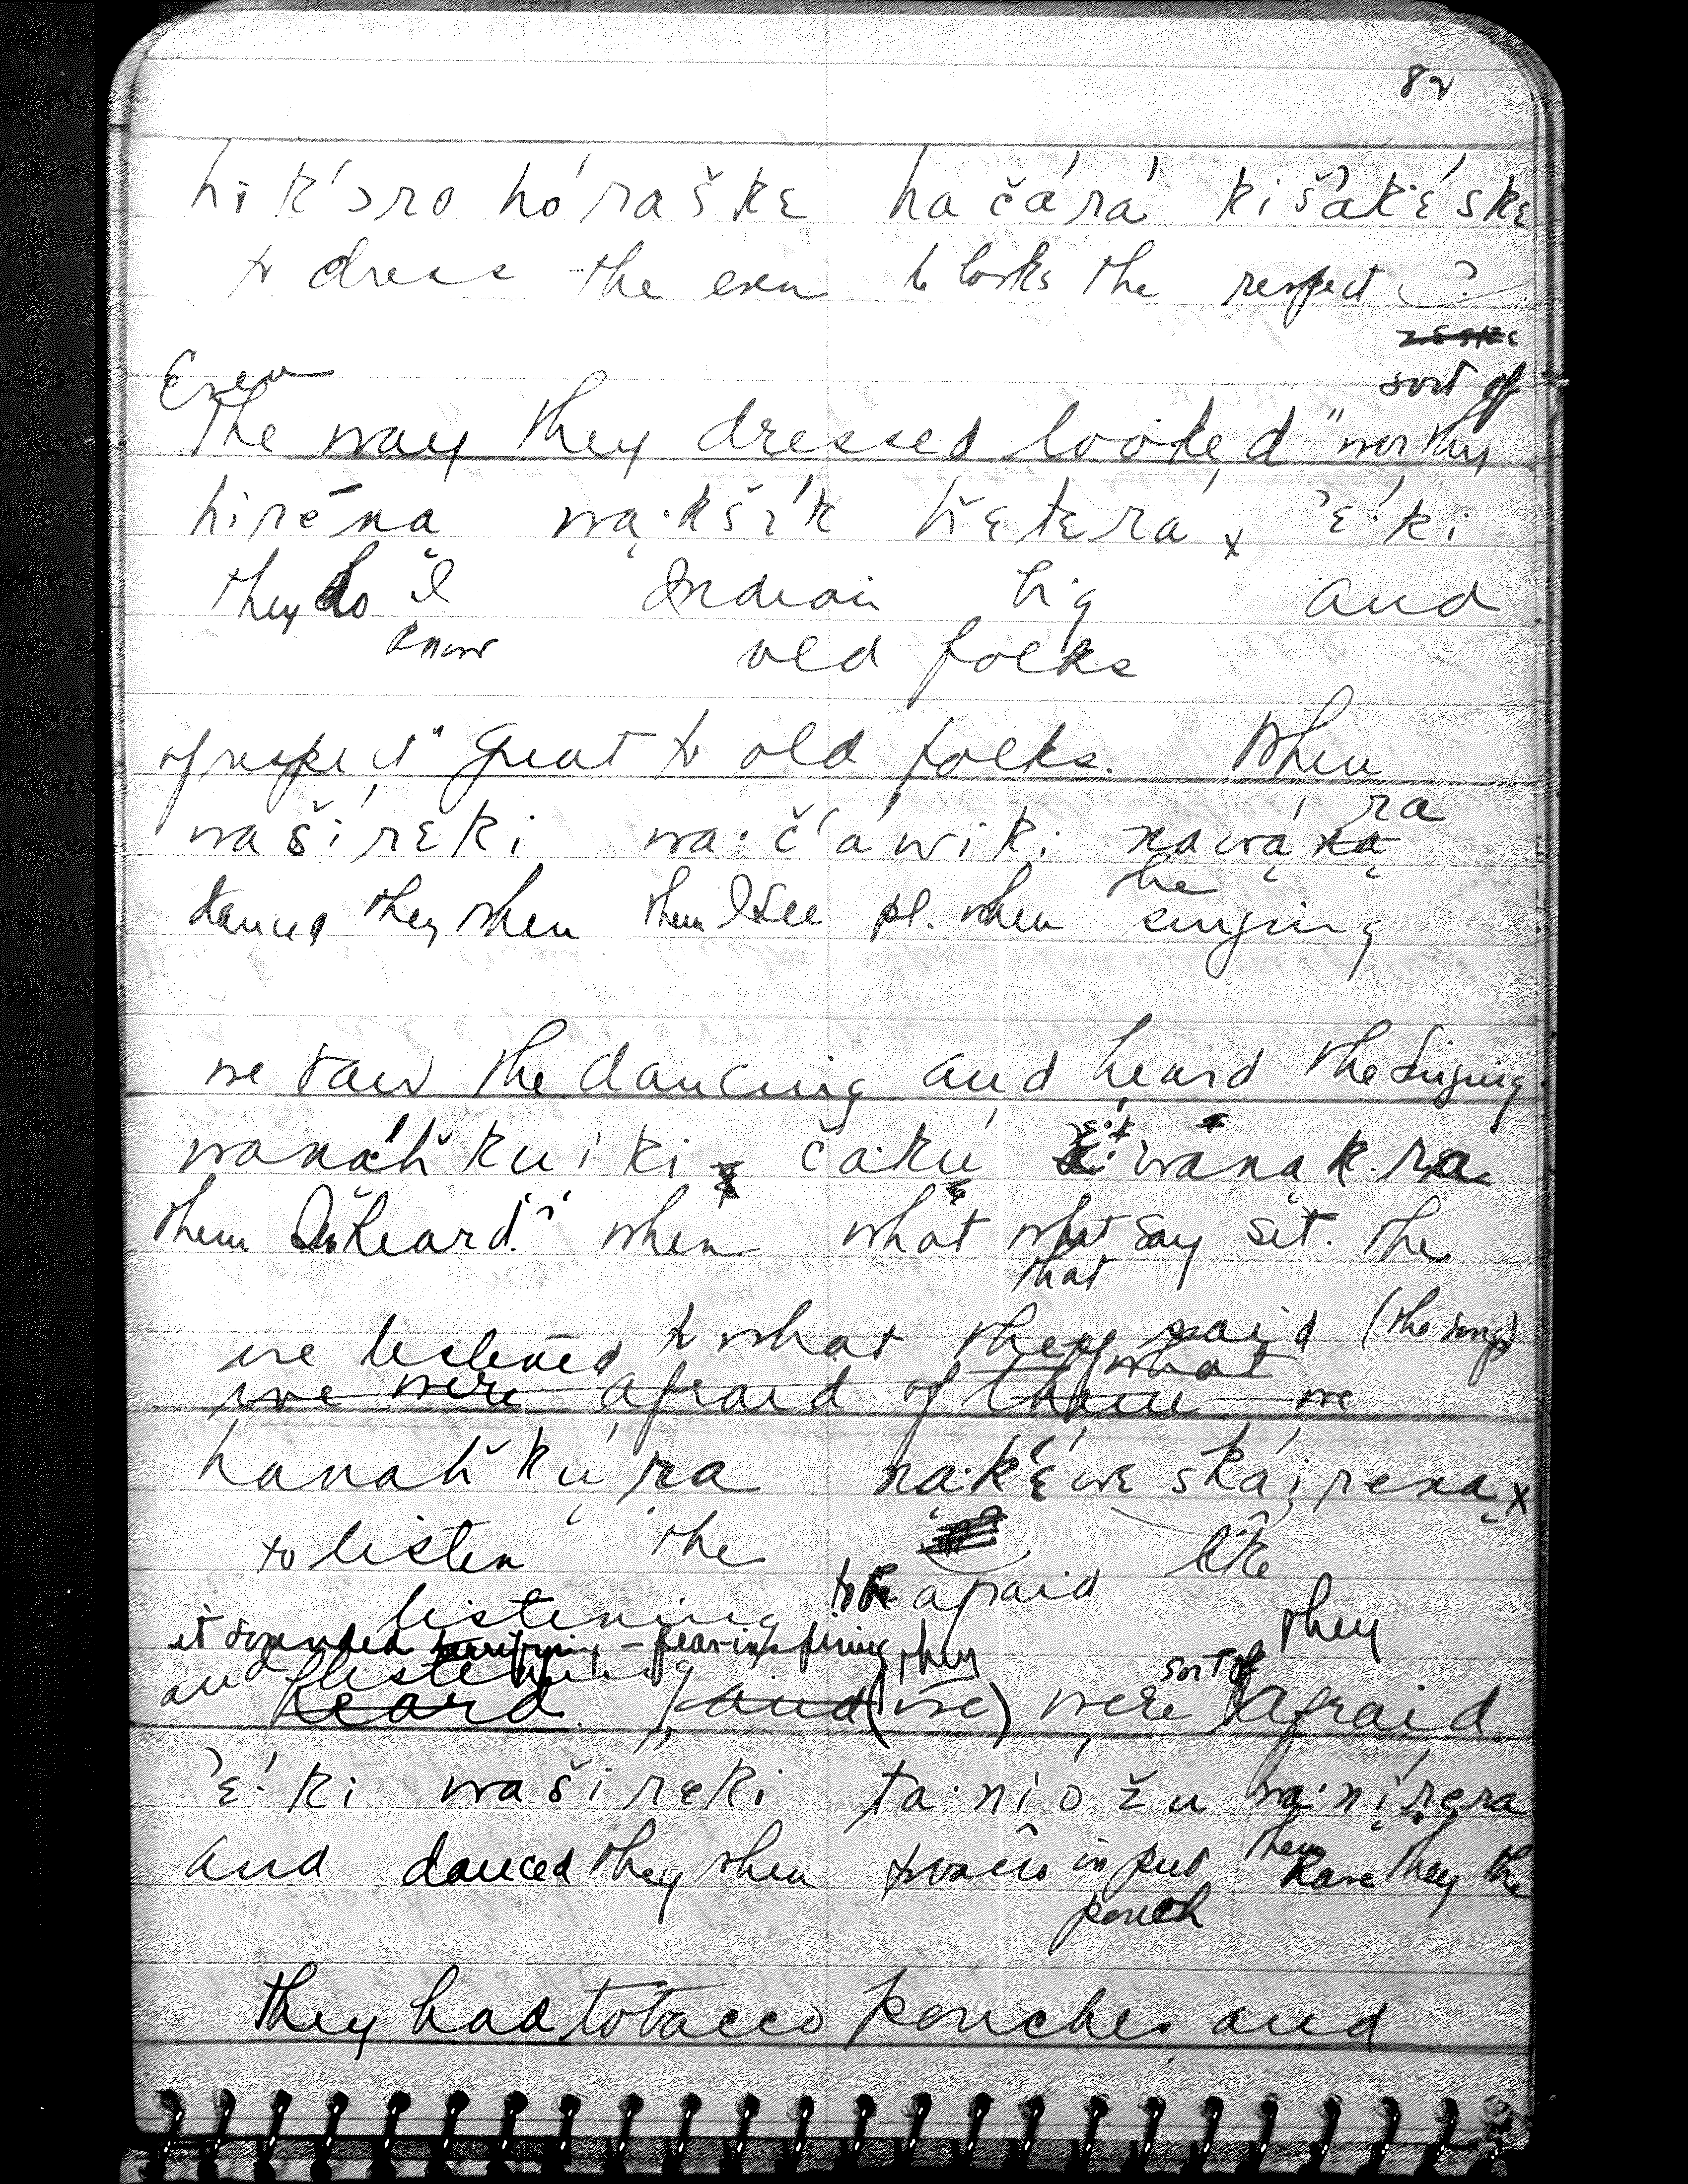 82
hik'ɔro hóraškɛ hačárá kišak'ɛ́skɛ
to dress the even to looks the respect ?
sort of
Even
the way they dressed looked "worthy
hiréna wą·kšík x̌ɛtɛrá x 'ɛ́·ki
they do I Indian big and
know old folks
of respect" great to old folks. When
wašírɛki wa·č'áwiki nąwą́ ra
the
danced they when them I see pl. when singing
we saw the dancing and heard the singing
waną́x̌ku iki čakú wánąk.ra
them I heard when what what say sit. the
that
we listened to what they said (the song)
we were afraid of them what we
hanax̌kų́ra nąk'ɛ́wɛ skáireną x
to listen the like
to be afraid
listening
it sounded terrifying - fear-inspiring they they
and listening sort of
heard. and (we) were afraid
'ɛ́·ki wašírɛki ta·níožu wa·nį́rɛra
and danced they when tobacco in put them have they the
pouch
they had tobacco pouches and